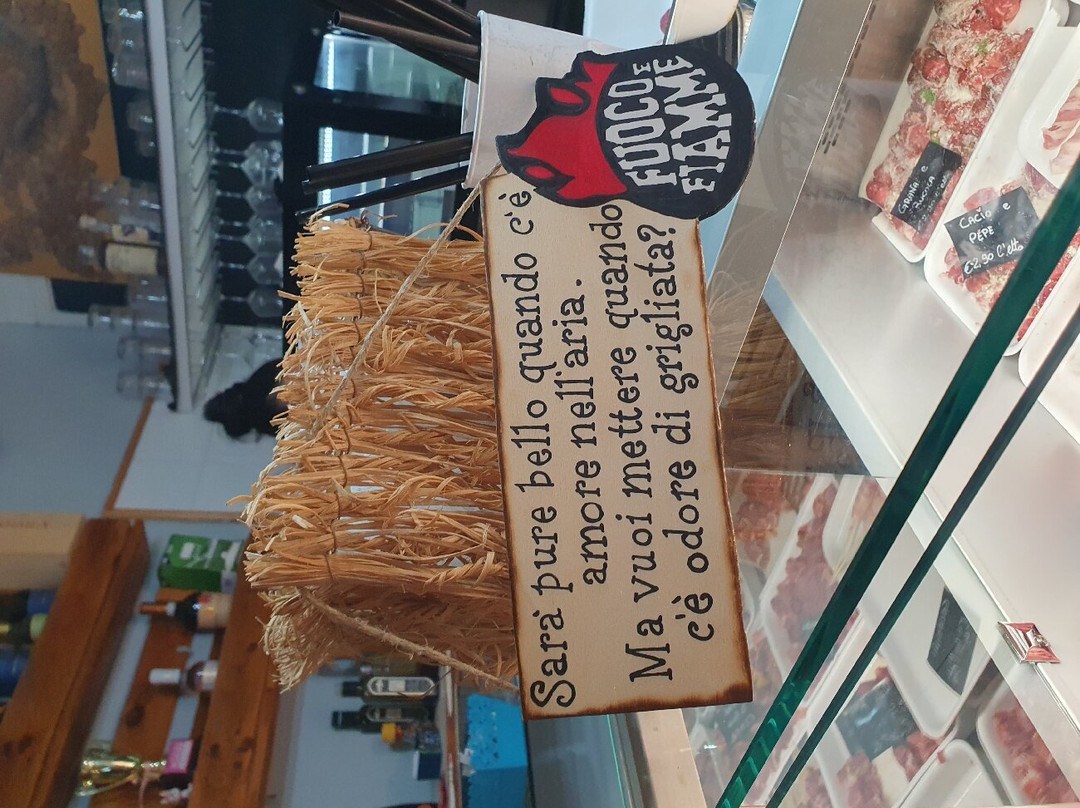 FUOCO E
FIAMME
Sarà pure bello quando c'è
amore nell'aria.
Ma vuoi mettere quando
c'è odore di grigliata?
CACIO e
PEPE
€2,90 l'etto